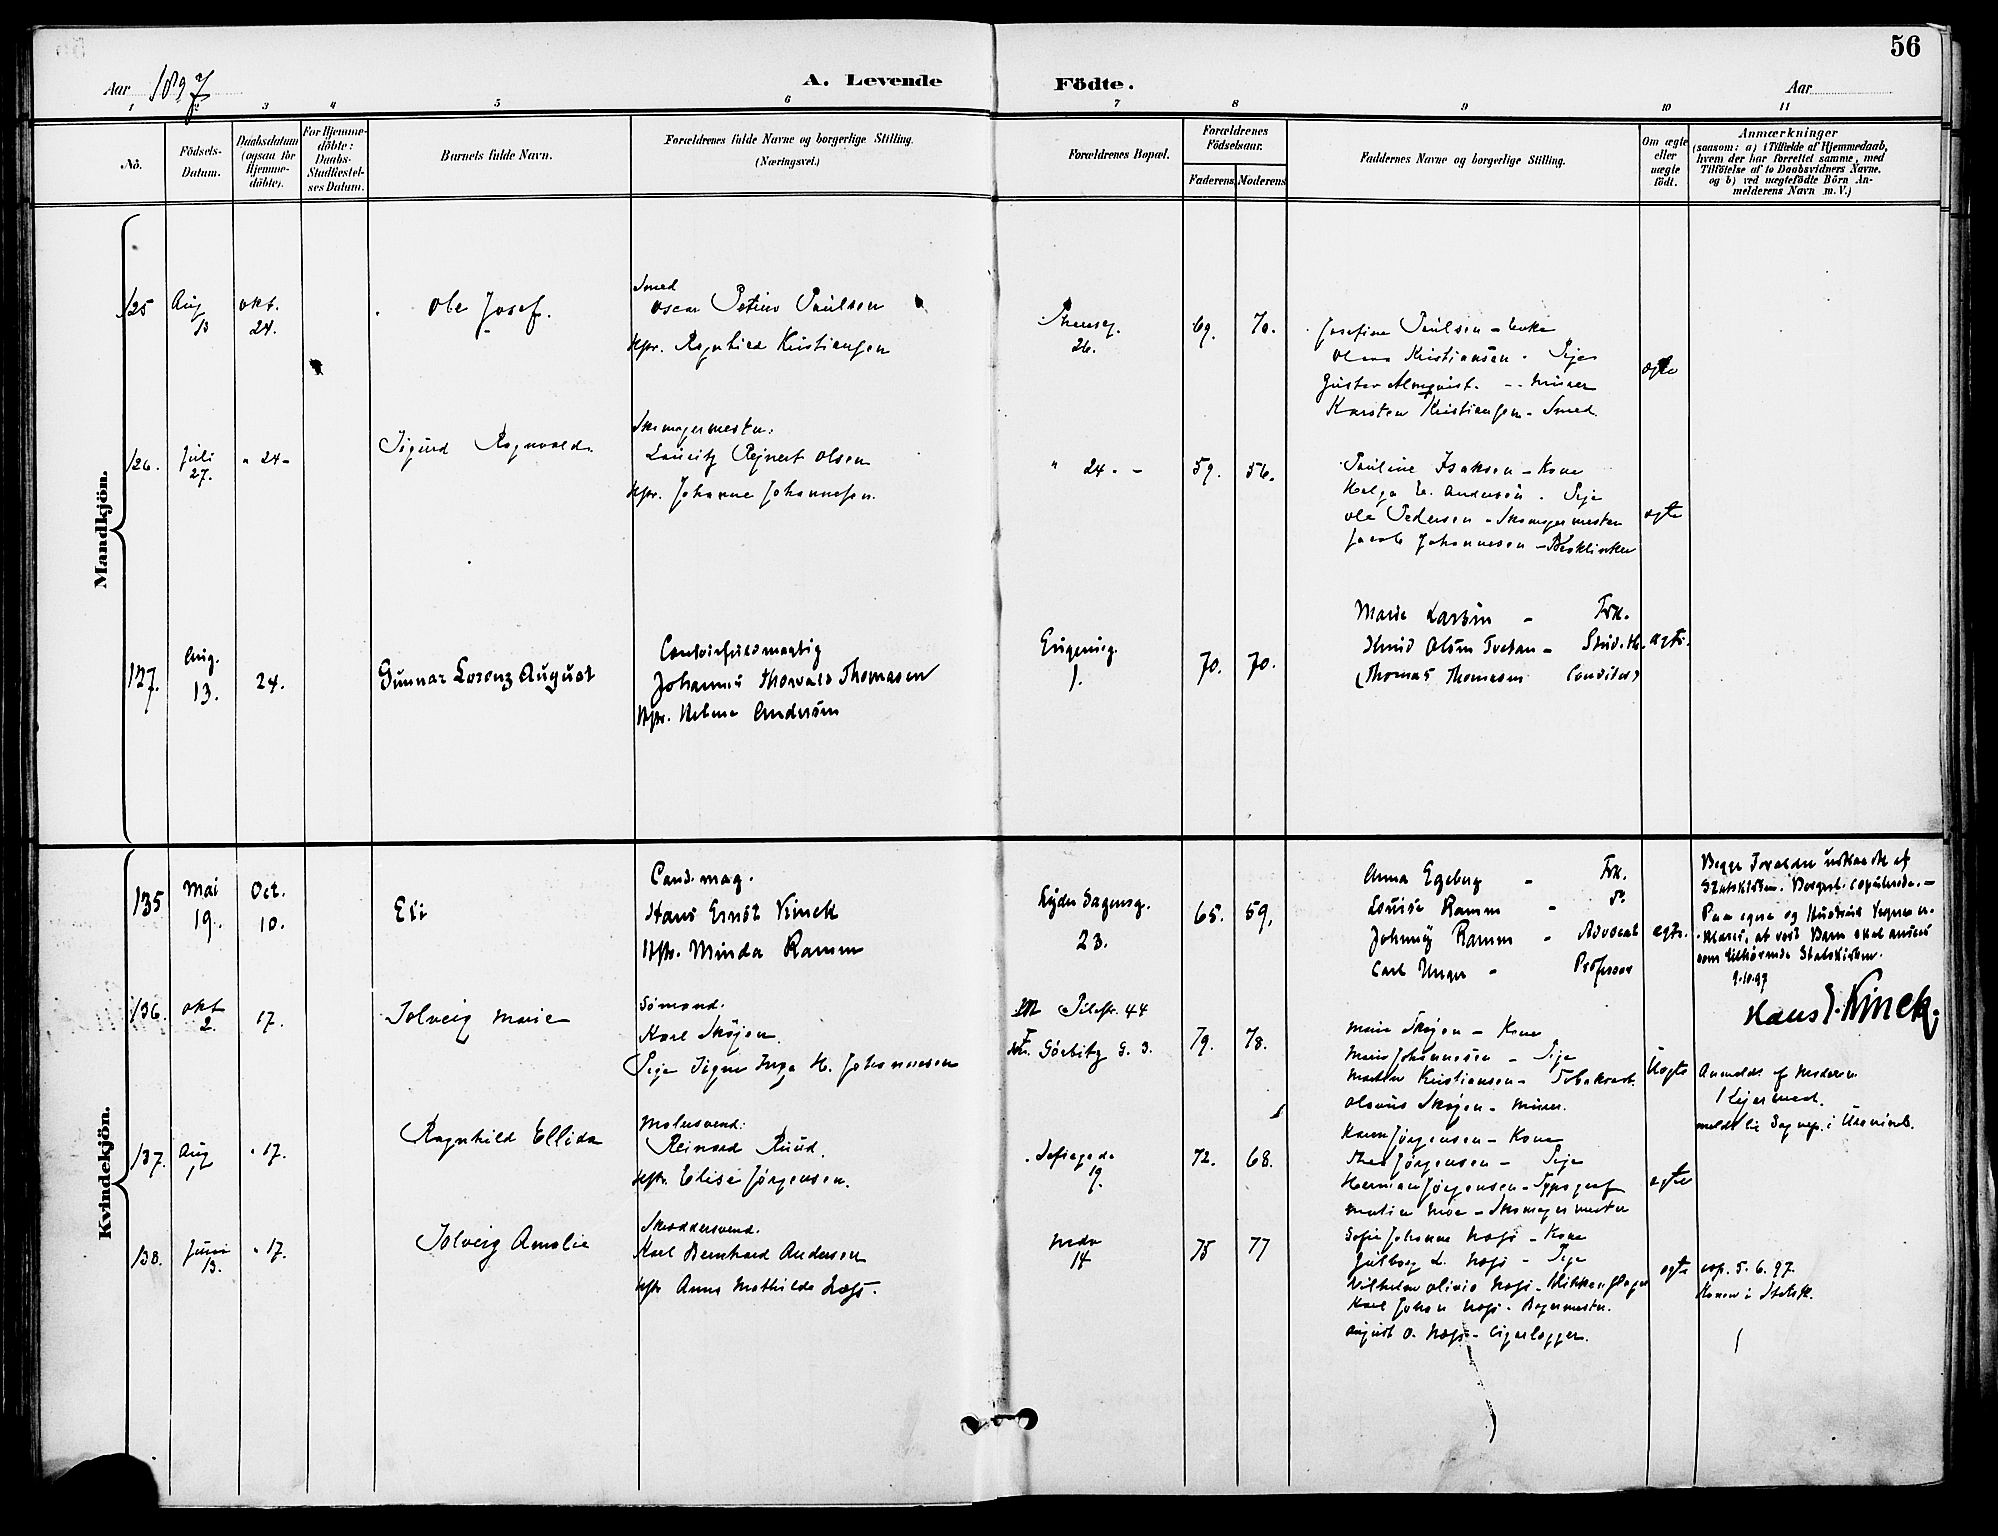 56
Aar 1897
A. Levende Födte.
Aar
1 2 3 4 5 6 7 8 9 10 11
Nô.
Födsels-
Datum.
Daabsdatum
(ogsaa for
Hjemme-
döbte).
For Hjemme-
döbte:
Daabs-
Stadfæstel-
ses Datum.
Barnets fulde Navn.
Forældrenes fulde Navne og borgerlige Stilling.
(Næringsvei.)
Forældrenes Bopæl.
Forældrenes
Födselsaar.
Faderens Moderens
Faddernes Navne og borgerlige Stilling.
Om ægte
eller
uægte
födt.
Anmærkninger
(saasom: a) i Tilfælde af Hjemmedaab,
hvem der har forrettet samme, med
Tilföielse af to Daabsvidners Navne,
og b) ved uægtefödte Börn An-
melderens Navn m. V.)
Mandkjön.
125 Aug 13 okt. 24. Ole Josef.
Smed
Oscar Petino Paulsen
Hst. Ragnhild Kristiansen
26. 69. 70.
Josefine Paulsen - Enke
Olava Kristiansen - Pige
Gustav Almqvist - Murer
Karsten Kristiansen - Smed.
ægte
126. Juli 27. " 24 - Sigurd Ragnvald.
Skomagermester:
Lauritz Rejnert Olsen
Hst. Johanne Johannesen.
" 24. - 59. 56.
Pauline Isaksen - Kone
Helga E. Andersen - Pige
Ole Pedersen - Skomagermester
Jacob Johannesen - Blikk
ægte
127. Aug. 13. 24. Gunnar Lorenz August
Contorfuldmægtig
Johannes Thorvald Thomasen
Hst. Helene Andersen
Eugenieg. 1. 70. 70.
Marie Larsen - Frk.
Knud Olsen Tvetan - Stud.
(Thomas Thomasen Conditor)
ægte.
Kvindekjön.
135 Mai 19. Oct. 10. Eli
Cand. mag.
Hans Ernst Kinck
Hst. Minda Ramm
Lyder Sagensg. 23. 65. 59.
Anna Egeberg - Frk.
Louise Ramm - Do.
Johnny Ramm - Advocat
Carl Unger - Professor
ægte.
Begge Forældre udtraadt af
Statskirken. Borgerl. copulerede. -
Paa egne og Hustrus Vegne er-
klæres, at vort Barn skal ansees
som tilhørende Statskirken.
9.10.97
Hans E. Kinck.
136. okt 2. 17. Solveig Marie
Sømand.
Karl Skøjen.
Pige Signe Inga H. Johannesen
M Pilestr. 44
F. Gørbitz G. 3. 79. 78.
Marie Skøjen - Kone
Marie Johannesen - Pige
Martin Kristiansen - Tobaksarb.
Olavus Skøjen - Murer.
Uægte
Anmeldt af Moderen
1 Lejermaal.
137. Aug 1 " 17. Ragnhild Ellida
Malersvend:
Reinard Ruud.
Hst. Elise Jørgensen.
Sofiegade 19. 72. 68.
Karen Jørgensen - Kone
Thea Jørgensen - Pige
Herman Jørgensen - Typograf
Martin Moe - Skomagermester
ægte
138. Juni 13. " 17. Solveig Amalie
Skræddersvend.
Karl Bernhard Andersen
Hst Anna Mathilde Næss.
14 75 77
Sofie Johanne Næss - Kone
Gulborg L. Næss - Pige
Vilhelm Olinio Næss - Blikkenslager
Karl Johan Næss - Bagermester.
August O. Næss - Cigarlægger.
ægte
cop. 5. 6. 97.
Konen i Statsk.